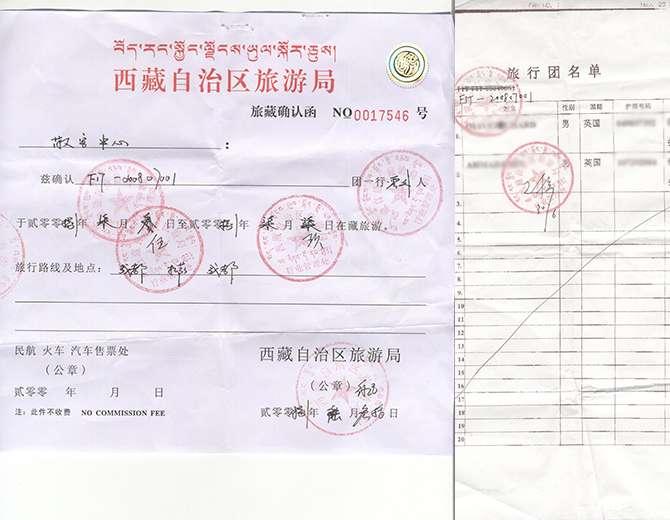 བོད་རང་སྐྱོང་ལྗོངས་ཡུལ་སྐོར་ཅུས།
西藏自治区旅游局
旅藏确认函 NO0017546 号
散客中心 :
兹确认 FIT-200807001 团一行 人
于贰零零捌年柒月 伍日至贰零零捌年柒月 玖日在藏旅游。
旅行路线及地点: 成都 拉萨 成都
民航 火车 汽车售票处
(公章)
贰零零 年 月 日
注: 此件不收费 NO COMMISSION FEE
西藏自治区旅游局
(公章)
贰零零捌年 月 日
FAX NO. :
Nov. 23
旅行团名单
FIT-200807001
性别 国籍 护照号码
男 英国
男 英国
2
3
4
5
6
7
8
9
10
11
12
13
14
15
16
17
18
19
20